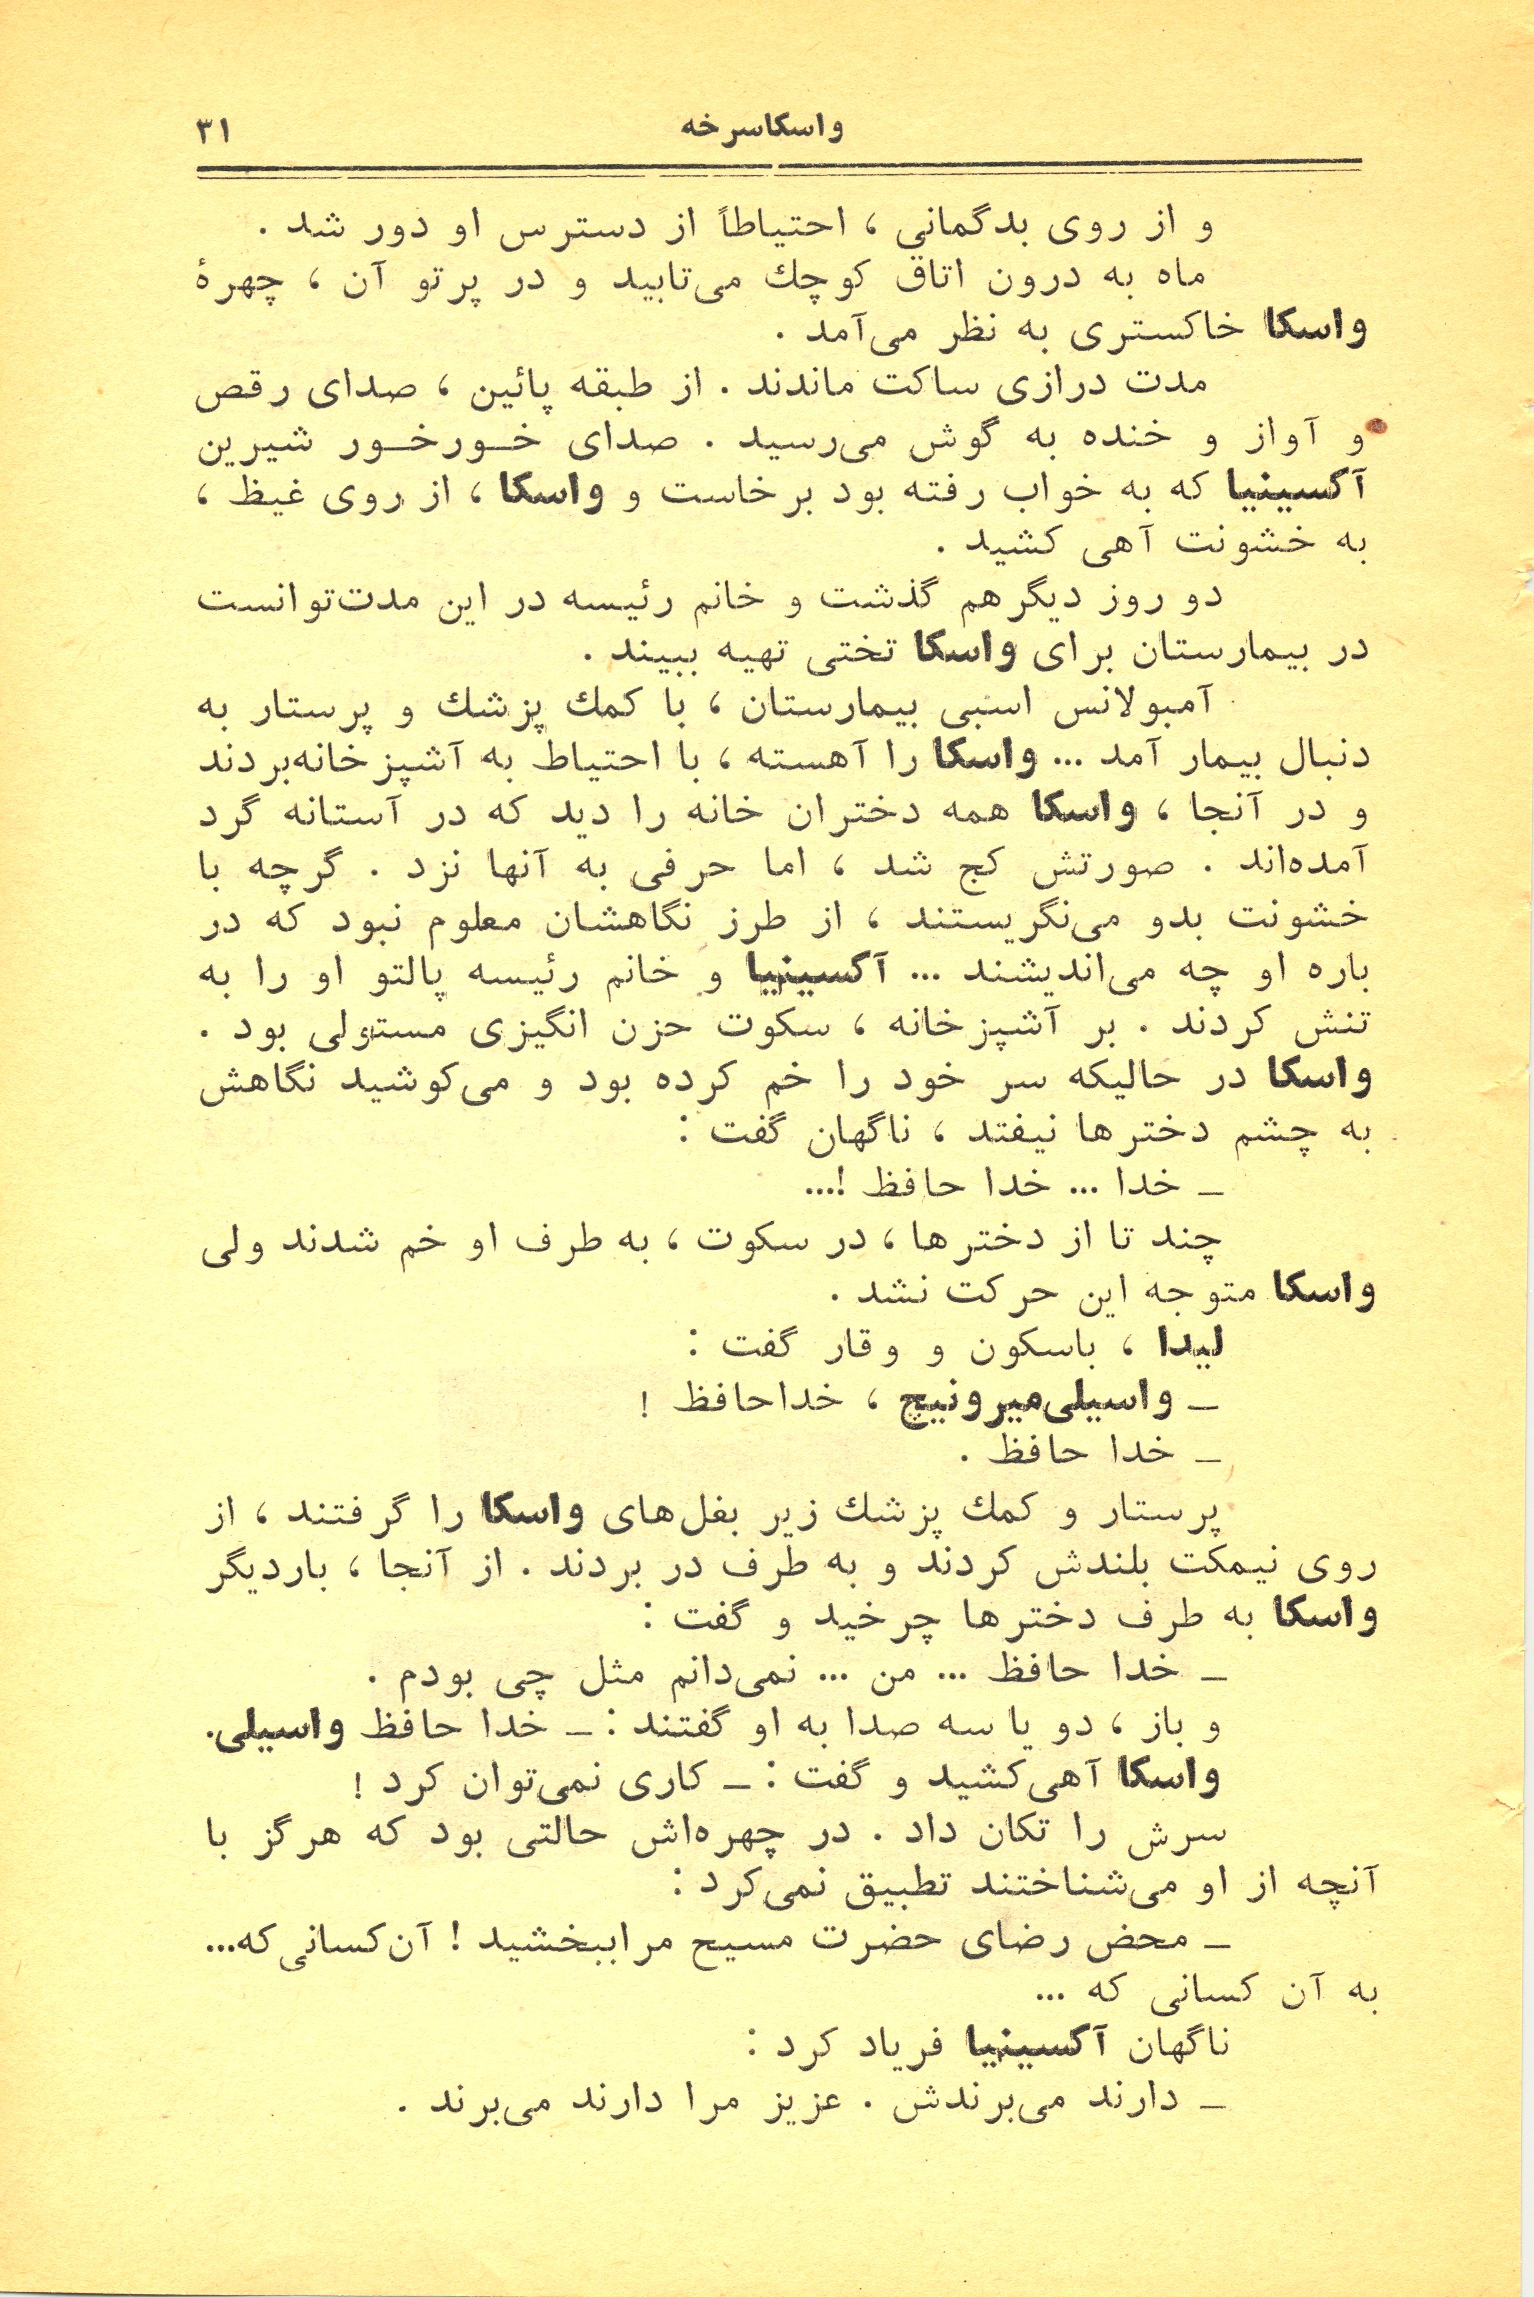 واسکاسرخه
۳۱
و از روی بدگمانی ، احتیاطاً از دسترس او دور شد .
ماه به درون اتاق کوچك می‌تابید و در پرتو آن ، چهرهٔ
واسکا خاکستری به نظر می‌آمد .
مدت درازی ساکت ماندند . از طبقه پائین ، صدای رقص
و آواز و خنده به گوش می‌رسید . صدای خـورخـور شیرین
آکسینیا که به خواب رفته بود برخاست و واسکا ، از روی غیظ ،
به خشونت آهی کشید .
دو روز دیگر هم گذشت و خانم رئیسه در این مدت‌توانست
در بیمارستان برای واسکا تختی تهیه ببیند .
آمبولانس اسبی بیمارستان ، با کمك پزشك و پرستار به
دنبال بیمار آمد ... واسکا را آهسته ، با احتیاط به آشپزخانه‌بردند
و در آنجا ، واسکا همه دختران خانه را دید که در آستانه گرد
آمده‌اند . صورتش کج شد ، اما حرفی به آنها نزد . گرچه با
خشونت بدو می‌نگریستند ، از طرز نگاهشان معلوم نبود که در
باره او چه می‌اندیشند ... آکسینیا و خانم رئیسه پالتو او را به
تنش کردند . بر آشپزخانه ، سکوت حزن انگیزی مستولی بود .
واسکا در حالیکه سر خود را خم کرده بود و می‌کوشید نگاهش
به چشم دخترها نیفتد ، ناگهان گفت :
ـ خدا ... خدا حافظ !...
چند تا از دخترها ، در سکوت ، به طرف او خم شدند ولی
واسکا متوجه این حرکت نشد .
لیدا ، باسکون و وقار گفت :
ـ واسیلی‌میرونیچ ، خداحافظ !
ـ خدا حافظ .
پرستار و کمك پزشك زیر بغل‌های واسکا را گرفتند ، از
روی نیمکت بلندش کردند و به طرف در بردند . از آنجا ، باردیگر
واسکا به طرف دخترها چرخید و گفت :
ـ خدا حافظ ... من ... نمی‌دانم مثل چی بودم .
و باز ، دو یا سه صدا به او گفتند : ـ خدا حافظ واسیلی.
واسکا آهی‌کشید و گفت : ـ کاری نمی‌توان کرد !
سرش را تکان داد . در چهره‌اش حالتی بود که هرگز با
آنچه از او می‌شناختند تطبیق نمی‌کرد :
ـ محض رضای حضرت مسیح مراببخشید ! آن‌کسانی‌که...
به آن کسانی که ...
ناگهان آکسینیا فریاد کرد :
ـ دارند می‌برندش . عزیز مرا دارند می‌برند .